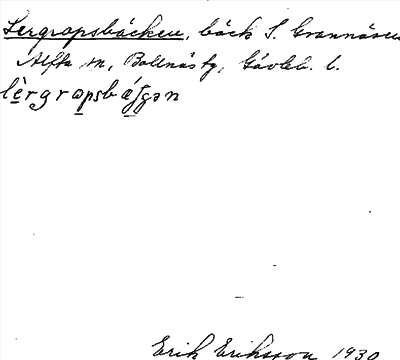 Lergropsbäcken, bäck S. Grannäsen
Alfta sn, Bollnäs tg, Gävleb. l.
lèrgropsbäʃʃən
Erik Eriksson 1930